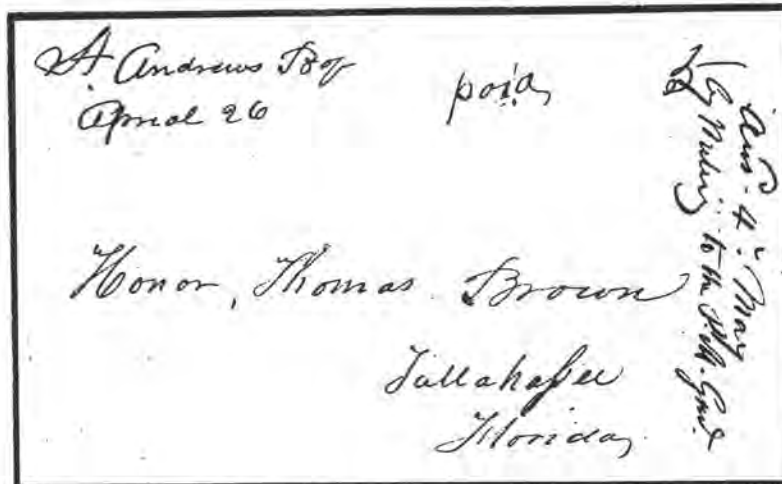 St Andrews Bay
April 26
paid
Honor, Thomas Brown
Tallahassee
Florida
Ans^d. 4^th. May
to the P.M. Genl.